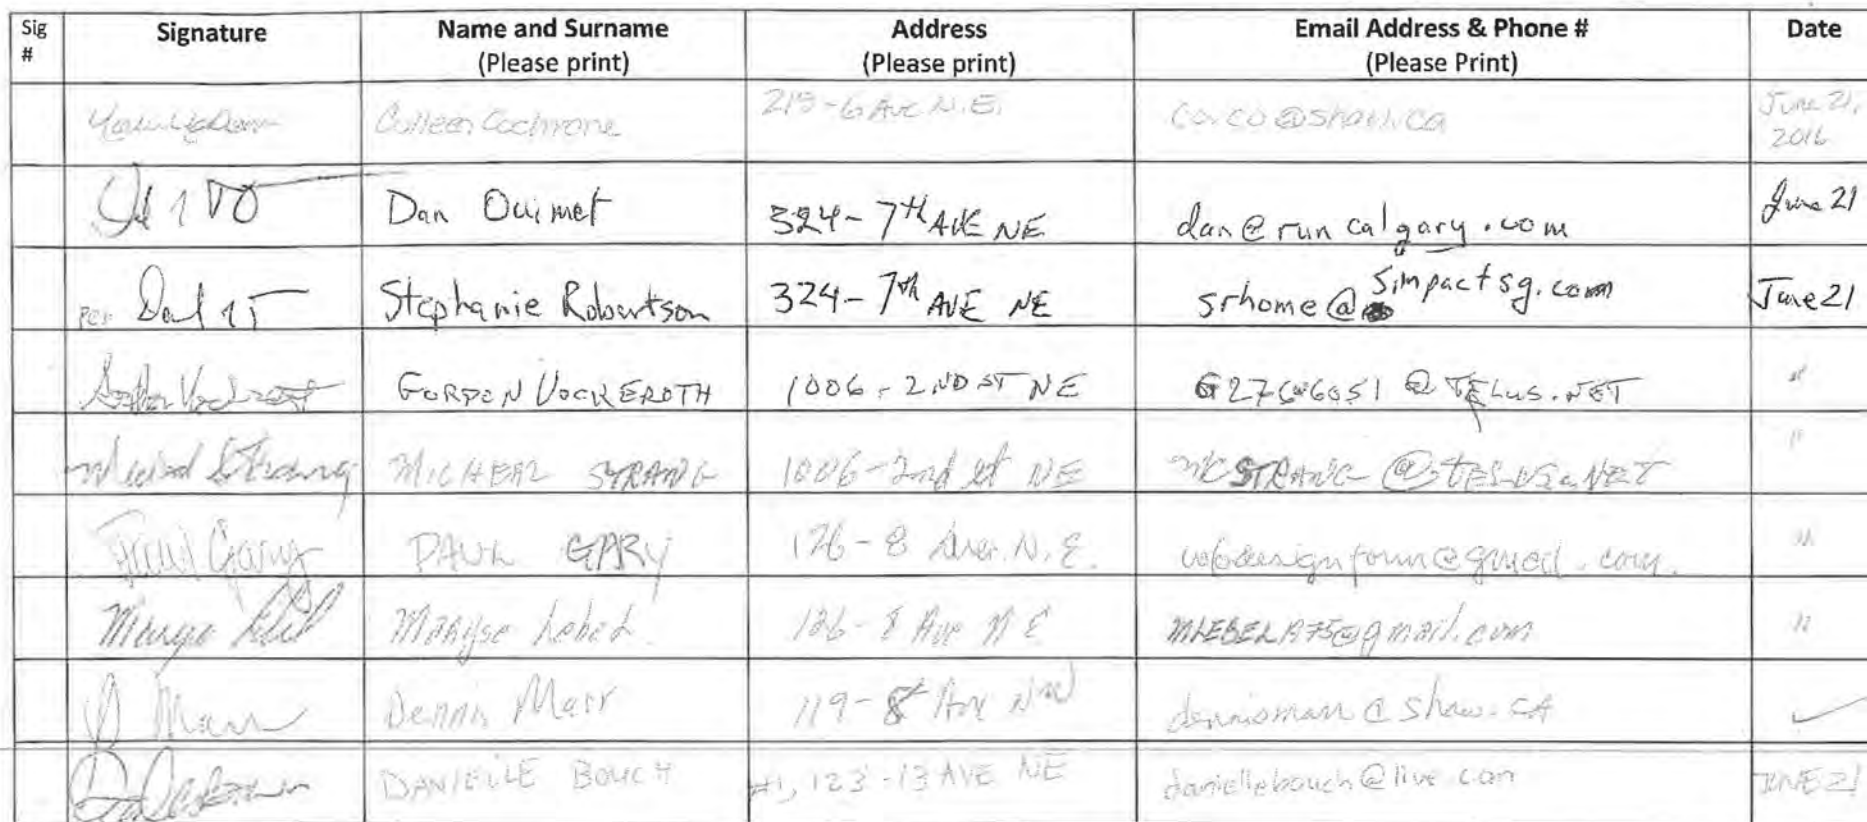 Sig # Signature Name and Surname (Please print) Address (Please print) Email Address & Phone # (Please Print) Date
Colleen Cochrane 219-6 Ave N.E. co.co@shaw.ca June 21, 2016
Dan Ouimet 324-7th AVE NE dan@runcalgary.com June 21
Per Stephanie Robertson 324-7th AVE NE srhome@simpactsg.com June 21
GORDON VOCKEROTH 1006-2ND ST NE @TELUS.NET "
Michael Strang MICHEAL STRANG 1006-2nd st NE MCSTRANG@TELUS.NET "
Paul Gary PAUL GARY 126-8 Ave. N.E. "
Maryse Lebel 126-8 Ave N E MLEBEL1975@gmail.com "
D Marr Dennis Marr 119-8 Ave NW dennismarr@shaw.ca ✓
DANIELLE BOUCH #1, 123-13 AVE NE daniellebouch@live.com JUNE 21